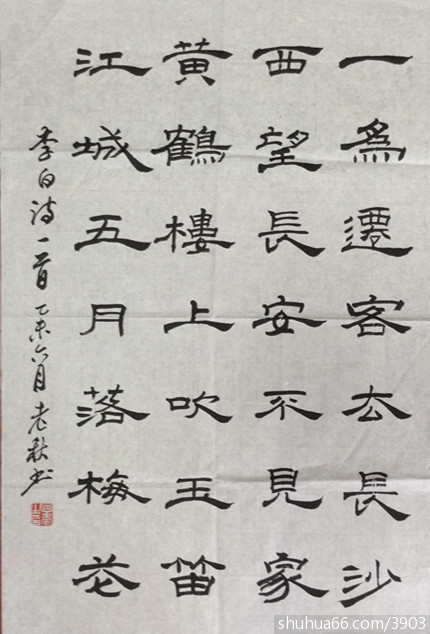 一為遷客去長沙
西望長安不見家
黄鶴樓上吹玉笛
江城五月落梅花
李白诗一首 乙未六月 老秋书
shuhua66.com/3903